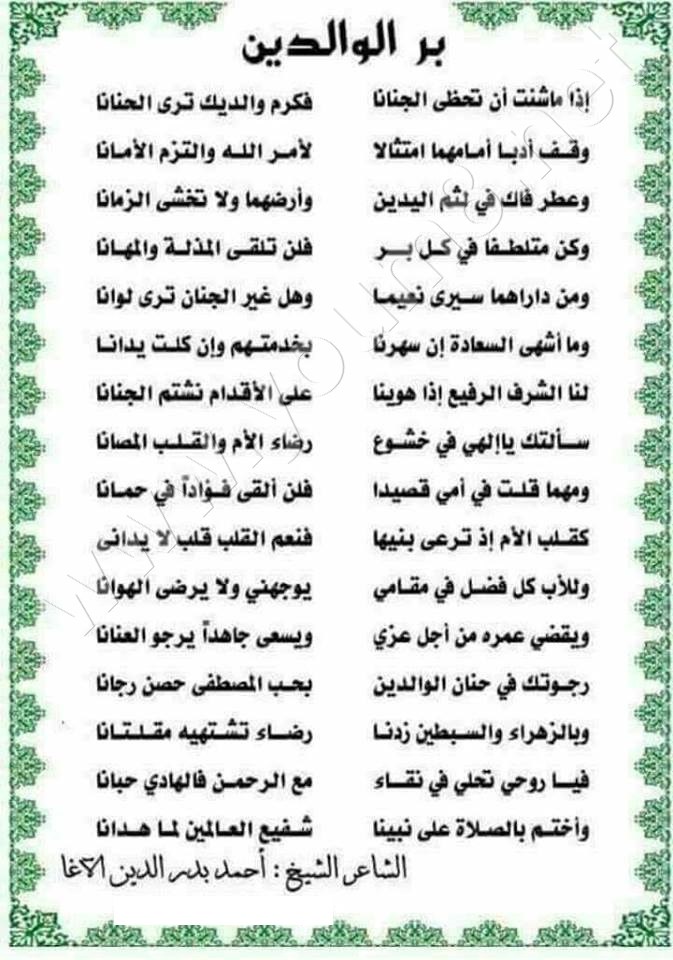 بر الوالدين
إذا ماشئت أن تحظى الجنانا فكرم والديك ترى الحنانا
وقف أدبا أمامهما امتثالا لأمر الله والتزم الأمانا
وعطر فاك في لثم اليدين وأرضهما ولا تخشى الزمانا
وكن متلطفا في كل بر فلن تلقى المذلة والمهانا
ومن داراهما سيرى نعيما وهل غير الجنان ترى لوانا
وما أشهى السعادة إن سهرنا بخدمتهم وإن كلت يدانا
لنا الشرف الرفيع إذا هوينا على الأقدام نشتم الجنانا
سألتك ياإلهي في خشوع رضاء الأم والقلب المصانا
ومهما قلت في أمي قصيدا فلن ألقى فؤاداً في حمانا
كقلب الأم إذ ترعى بنيها فنعم القلب قلب لا يدانى
وللأب كل فضل في مقامي يوجهني ولا يرضى الهوانا
ويقضي عمره من أجل عزي ويسعى جاهداً يرجو العنانا
رجوتك في حنان الوالدين بحب المصطفى حصن رجانا
وبالزهراء والسبطين زدنا رضاء تشتهيه مقلتانا
فيا روحي تحلي في نقاء مع الرحمن فالهادي حبانا
وأختم بالصلاة على نبينا شفيع العالمين لما هدانا
الشاعر الشيخ : أحمد بدر الدين الآغا
www.youm8.net